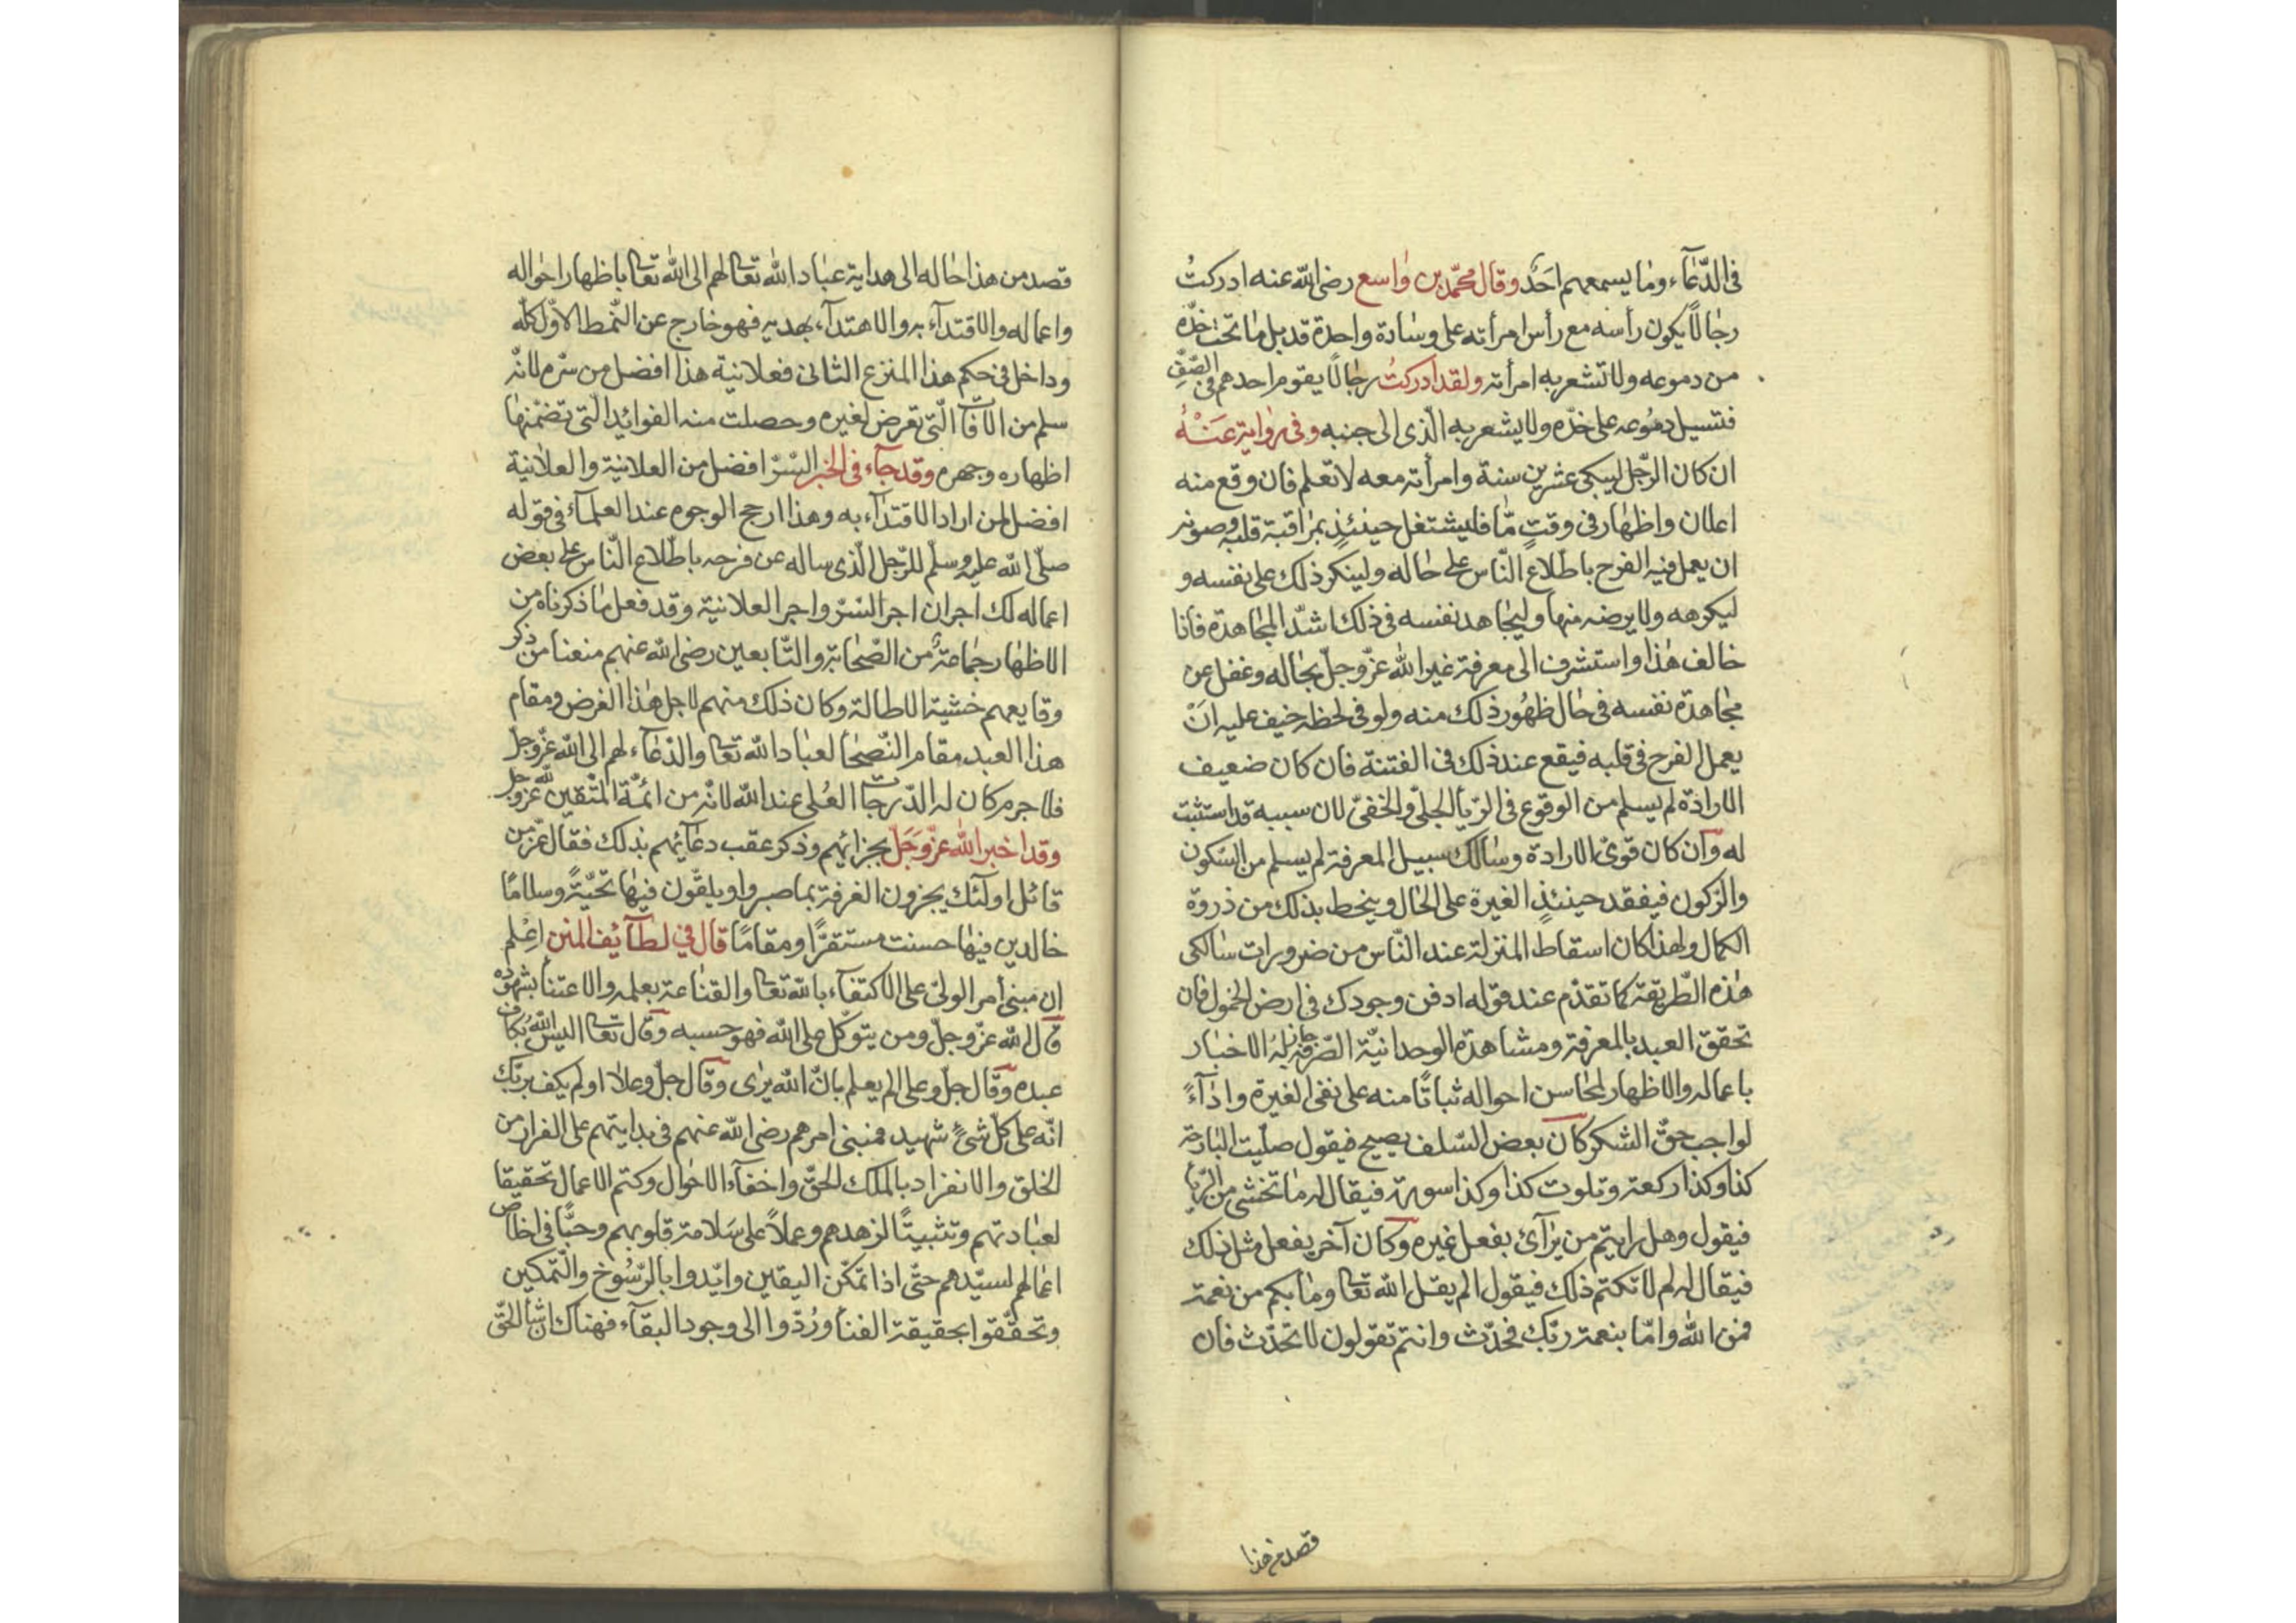 فى الدّعآء وما يسمعهم احَدٌ وقال محمّد بن واسع رضى الله عنه ادركتُ
رجالًا يكون رأسه مع رأس امرأته على وسادة واحدة قد بل ما تحت خدّه
من دموعه ولا تشعر به امرأته ولقد ادركتُ رجالًا يقوم احدهم فى الصّفّ
فتسيل دموعه على خدّه ولا يشعر به الّذى الى جنبه وفى رواية عَنْهُ
ان كان الرّجل ليبكى عشرين سنة وامرأته معه لا تعلم فان وقع منه
اعلان واظهار فى وقتٍ مّا فليشتغل حينئذٍ بمراقبة قلبه وصونه
ان يعمل فيه الفرح باطّلاع النّاس على حاله ولينكر ذلك على نفسه و
ليكرهه ولا يرضه منها وليجاهد نفسه فى ذلك اشدّ المجاهدة فانا
خالف هذا واستشرف الى معرفة غير الله عزّ وجلّ بحاله وغفل عن
مجاهدة نفسه فى حال ظهور ذلك منه ولو فى لحظة خيف عليه انْ
يعمل الفرح فى قلبه فيقع عند ذلك فى الفتنة فان كان ضعيف
الارادة لم يسلم من الوقوع فى الريأ الجلىّ والخفىّ لان سببه قد استثبت
له وان كان قوىّ الارادة وسالك سبيل المعرفة لم يسلم من السّكون
والرّكون فيفقد حينئذٍ الغيرة على الحال وينحط بذلك من ذروة
الكمال ولهذا كان اسقاط المنزلة عند النّاس من ضرورات سالكى
هذه الطّريقة كما تقدّم عند قوله ادفن وجودك فى ارض الخمول فان
تحقق العبد بالمعرفة ومشاهدة الوحدانيّة الصّرفة جاز لهُ الاخبار
باعماله والاظهار لمحاسن احواله ثباتًا منه على نفى الغيرة واداءً
لواجب حقّ الشكر كان بعض السّلف يصيح فيقول صلّيت البارحة
كذا وكذا ركعة وتلوت كذا وكذا سورة فيقال له ما تخشى من الريأ
فيقول وهل رايتم من يرآئ بفعل غيره وكان آخر يفعل مثل ذلك
فيقال له لم لا تكتم ذلك فيقول الم يقل الله تعا وما بكم من نعمة
فمن الله وامّا بنعمة ربّك فحدّث وانتم تقولون لا تحدّث فان
قصد من هذا
قصد من هذا حاله الى هداية عباد الله تعا لهم الى الله تعا باظهار احواله
واعماله والاقتدآء به والاهتدآء بهديه فهو خارج عن النّمط الاوّل كلّه
وداخل فى حكم هذا المنزع الثانى فعلانية هذا افضل من سرّه لانّه
سلم من الآفات الّتى تعرض لغيره وحصلت منه الفوائد الّتى تضمّنها
اظهاره وجهره وقد جآء فى الخبر السّرّ افضل من العلانية والعلانية
افضل لمن اراد الاقتدآء به وهذا ارجح الوجوه عند العلمآء فى قوله
صلّى الله عليه وسلّم للرّجل الّذى ساله عن فرحه باطّلاع النّاس على بعض
اعماله لك اجران اجر السّرّ واجر العلانية وقد فعل ما ذكرناه من
الاظهار جماعةٌ من الصّحابة والتّابعين رضى الله عنهم منعنا من ذكر
وقايعهم خشية الاطالة وكان ذلك منهم لاجل هذا الغرض ومقام
هذا العبد مقام النّصحا لعباد الله تعا والدّعآء لهم الى الله عزّ وجلّ
فلا جرم كان له الدّرجات العُلى عند الله لانّه من ائمّة المتّقين لله عزّ وجل
وقد اخبر الله عزّ وَجَلّ بجزائهم وذكر عقب دعآئهم بذلك فقال عزّ من
قائل اولئك يجزون الغرفة بما صبروا ويلقّون فيها تحيّةً وسلامًا
خالدين فيها حسنت مستقرًّا ومقامًا قال فى لطآئف المنن اِعْلم
ان مبنى أمر الولىّ على الاكتفآء بالله تعا والقناعة بعلمه والاعتنأ بشهوده
قال الله عزّ وجلّ ومن يتوكّل على الله فهو حسبه وقال تعا اليس اللهُ بكاف
عبده وقال جلّ وعلى الم يعلم بانّ الله يرى وقال جلّ وعلا اولم يكف بربّك
انّه على كلّ شئٍ شهيد فمبنى امرهم رضى الله عنهم فى بدايتهم على الفرار من
الخلق والانفراد بالملك الحقّ واخفآء الاحوال وكتم الاعمال تحقيقا
لعبادتهم وتثبيتًا لزهدهم وعملاً على سَلامة قلوبهم وحبًّا فى اخلاص
اعمالهم لسيّدهم حتّى اذا تمكّن اليقين وايّدوا بالرّسُوخ والتّمكين
وتحقّقوا بحقيقة الفنأ ورُدّوا الى وجود البقآء فهناك ان شأ الحقّ